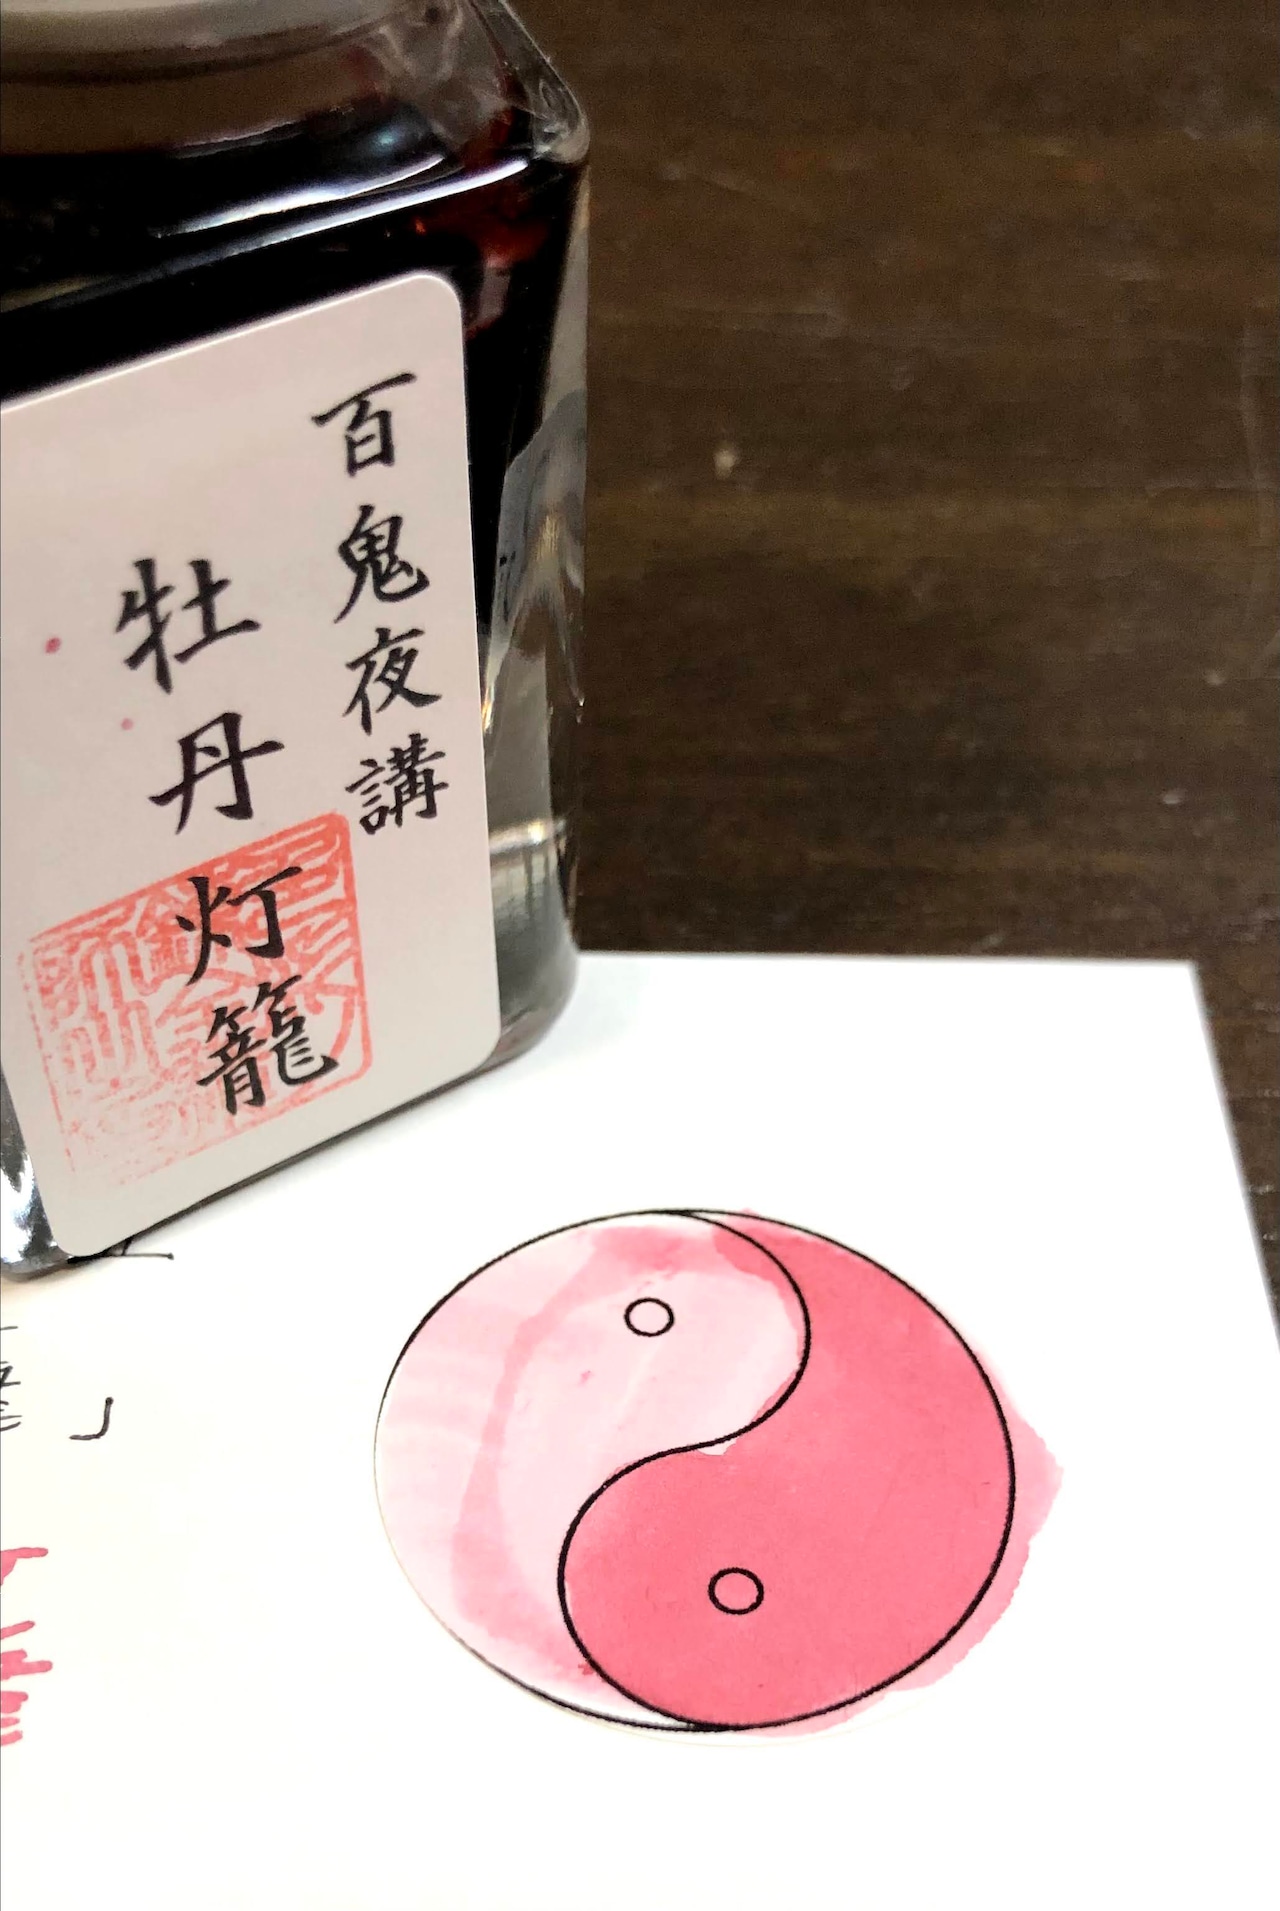 百鬼夜講
牡丹灯籠